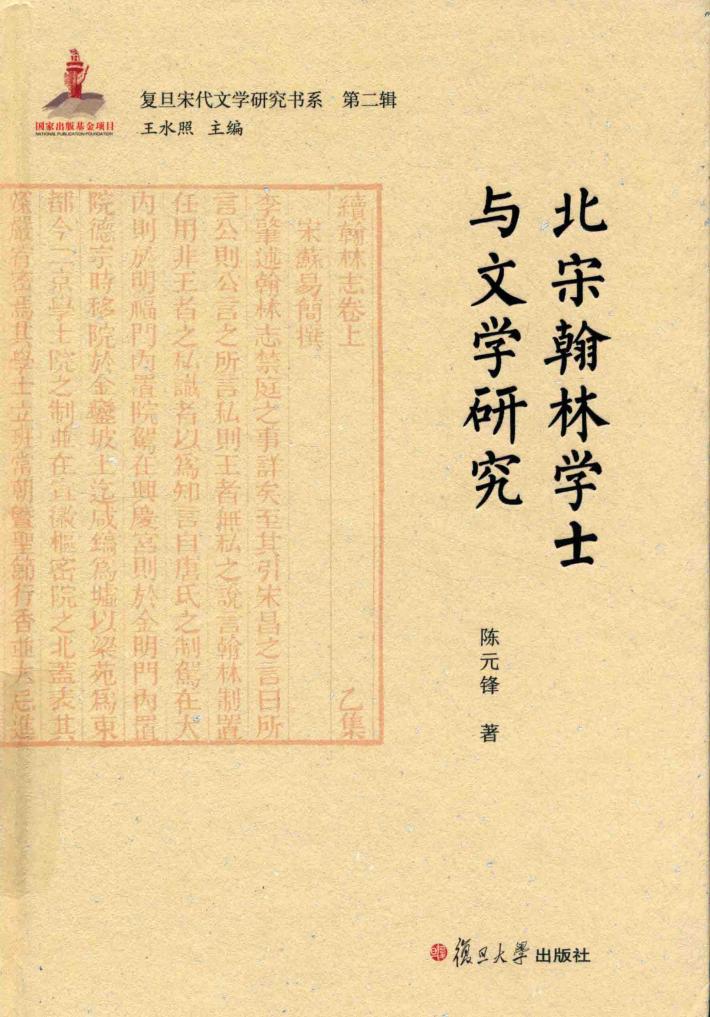 国家出版基金项目
NATIONAL PUBLICATION FOUNDATION
复旦宋代文学研究书系 第二辑
王水照 主编
北宋翰林学士
与文学研究
陈元锋 著
續翰林志卷上 乙集
宋蘇易簡撰
李肇述翰林志禁庭之事詳矣至其引宋昌之言曰所
言公則公言之所言私則王者無私之說言翰林制置
任用非王者之私識者以為知言自唐氏之制駕在大
內則於明福門內置院駕在興慶宮則於金明門內置
院德宗時移院於金鑾坡上迄咸鎬為墟以梁苑為東
都今二京學士院之制並在宣徽樞密院之北蓋表其
深嚴宥密焉其學士立班常朝暨聖節行香並大忌進
復旦大學出版社